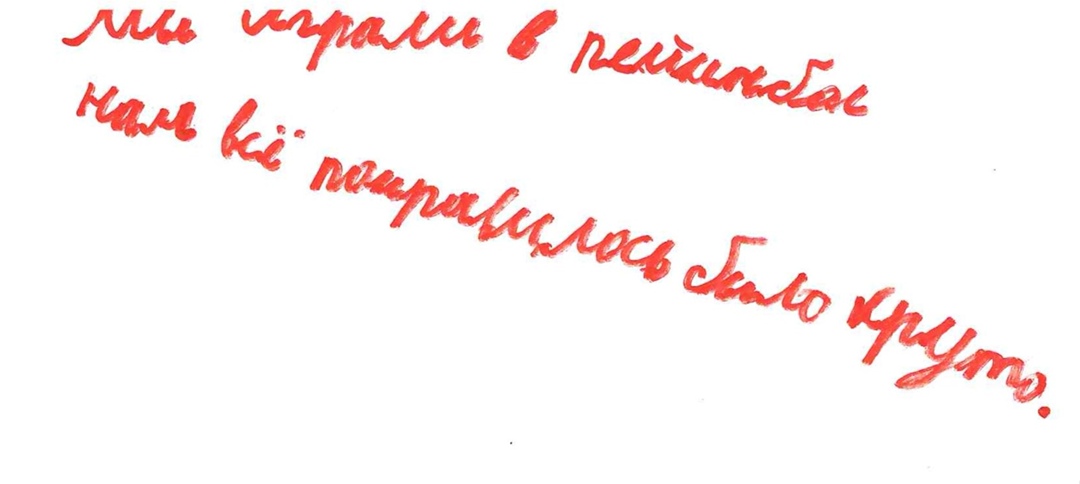 мы играли в
нам всё понравилось было круто.